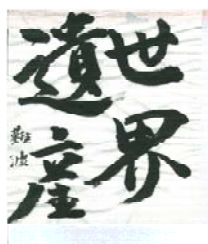 世界
遺産